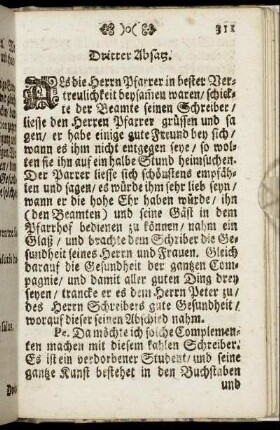 )o( 311
Dritter Absatz.
ALs die Herrn Pfarrer in bester Ver-
treulichkeit beysam̃en waren/ schick-
te der Beamte seinen Schreiber/
liesse den Herren Pfarrer grüssen und sa
gen/ er habe einige gute Freund bey sich/
wann es ihm nicht entgegen seye/ so wol-
ten sie ihn auf ein halbe Stund heimsuchen.
Der Parrer liesse sich schönstens empfäh-
len und sagen/ es würde ihm sehr lieb seyn/
wann er die hohe Ehr haben würde/ ihn
(den Beamten) und seine Gäst in dem
Pfarrhof bedienen zu können/ nahm ein
Glaß/ und brachte dem Schreiber die Ge-
sundheit seines Herrn und Frauen. Gleich
darauf die Gesundheit der gantzen Com-
pagnie/ und damit aller guten Ding drey
seyen/ trancke er es dem Herrn Peter zu/
des Herrn Schreibers gute Gesundheit/
worauf dieser seinen Abschied nahm.
Pe. Da möchte ich solche Complemen-
ten machen mit diesem kahlen Schreiber.
Es ist ein verdorbener Student/ und seine
gantze Kunst bestehet in den Buchstaben
und